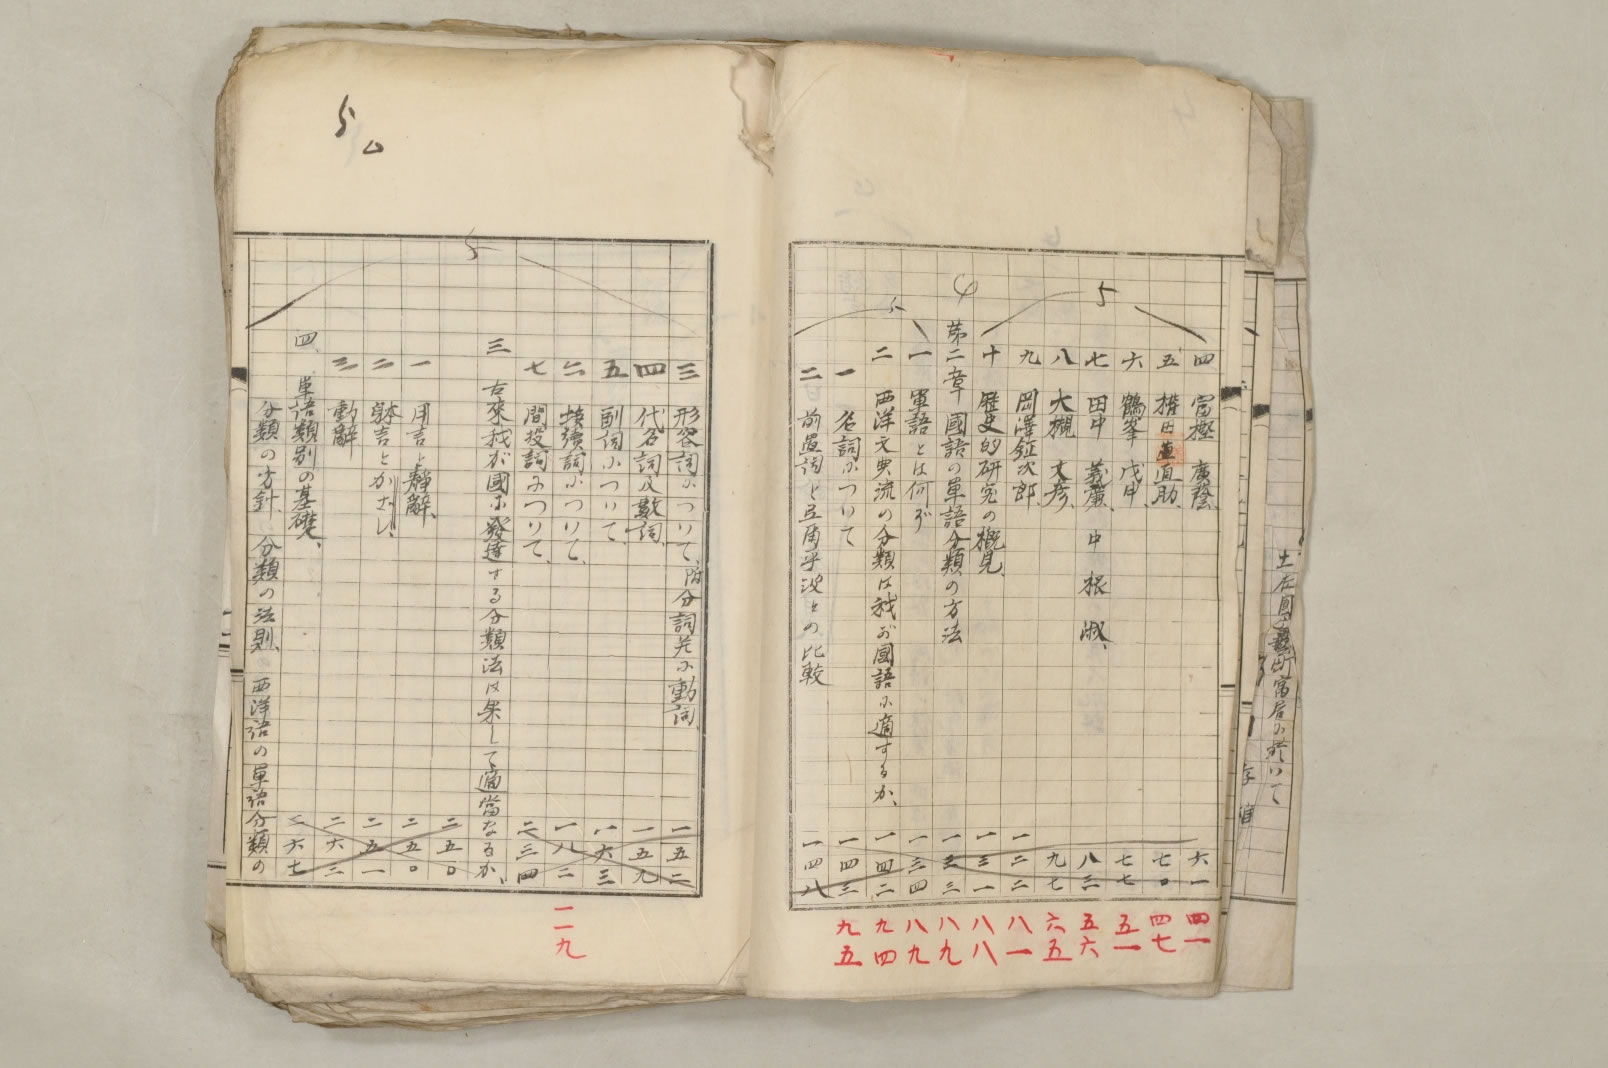 四 富樫 廣蔭 六一 四一
五 権田 直助、 七〇 四七
六 鶴峯 戊申、 七七 五一
七 田中 義廉、 中根 淑、 八三 五六
八 大槻 文彦、 九七 六五
九 岡澤鉦次郎、 一二二 八一
十 歴史的研究の概見、 一三一 八八
第二章 國語の單語分類の方法 一三三 八九
一 單語とは何ぞ 一三四 八九
二 西洋文典流の分類は我が國語に適するか、 一四二 九四
一 名詞について 一四三 九五
二 前置詞と弖爾乎波との比較 一四八
三 形容詞について、附分詞並に動詞 一五二
四 代名詞及數詞、 一五九
五 副詞について、 一六三
六 接續詞について、 一八二 一一九
七 間投詞について、 二三四
三 古來我が國に發達する分類法は果して適當なるか、 二五〇
一 用言と靜辭、 二五〇
二 躰言とかざし、 二五一
三 動辭 二六二
四、單語類別の基礎、 二六七
分類の方針、分類の法則、西洋語の單語分類の
5
4
5
5
5
ム
土佐國
町寓居に於いて